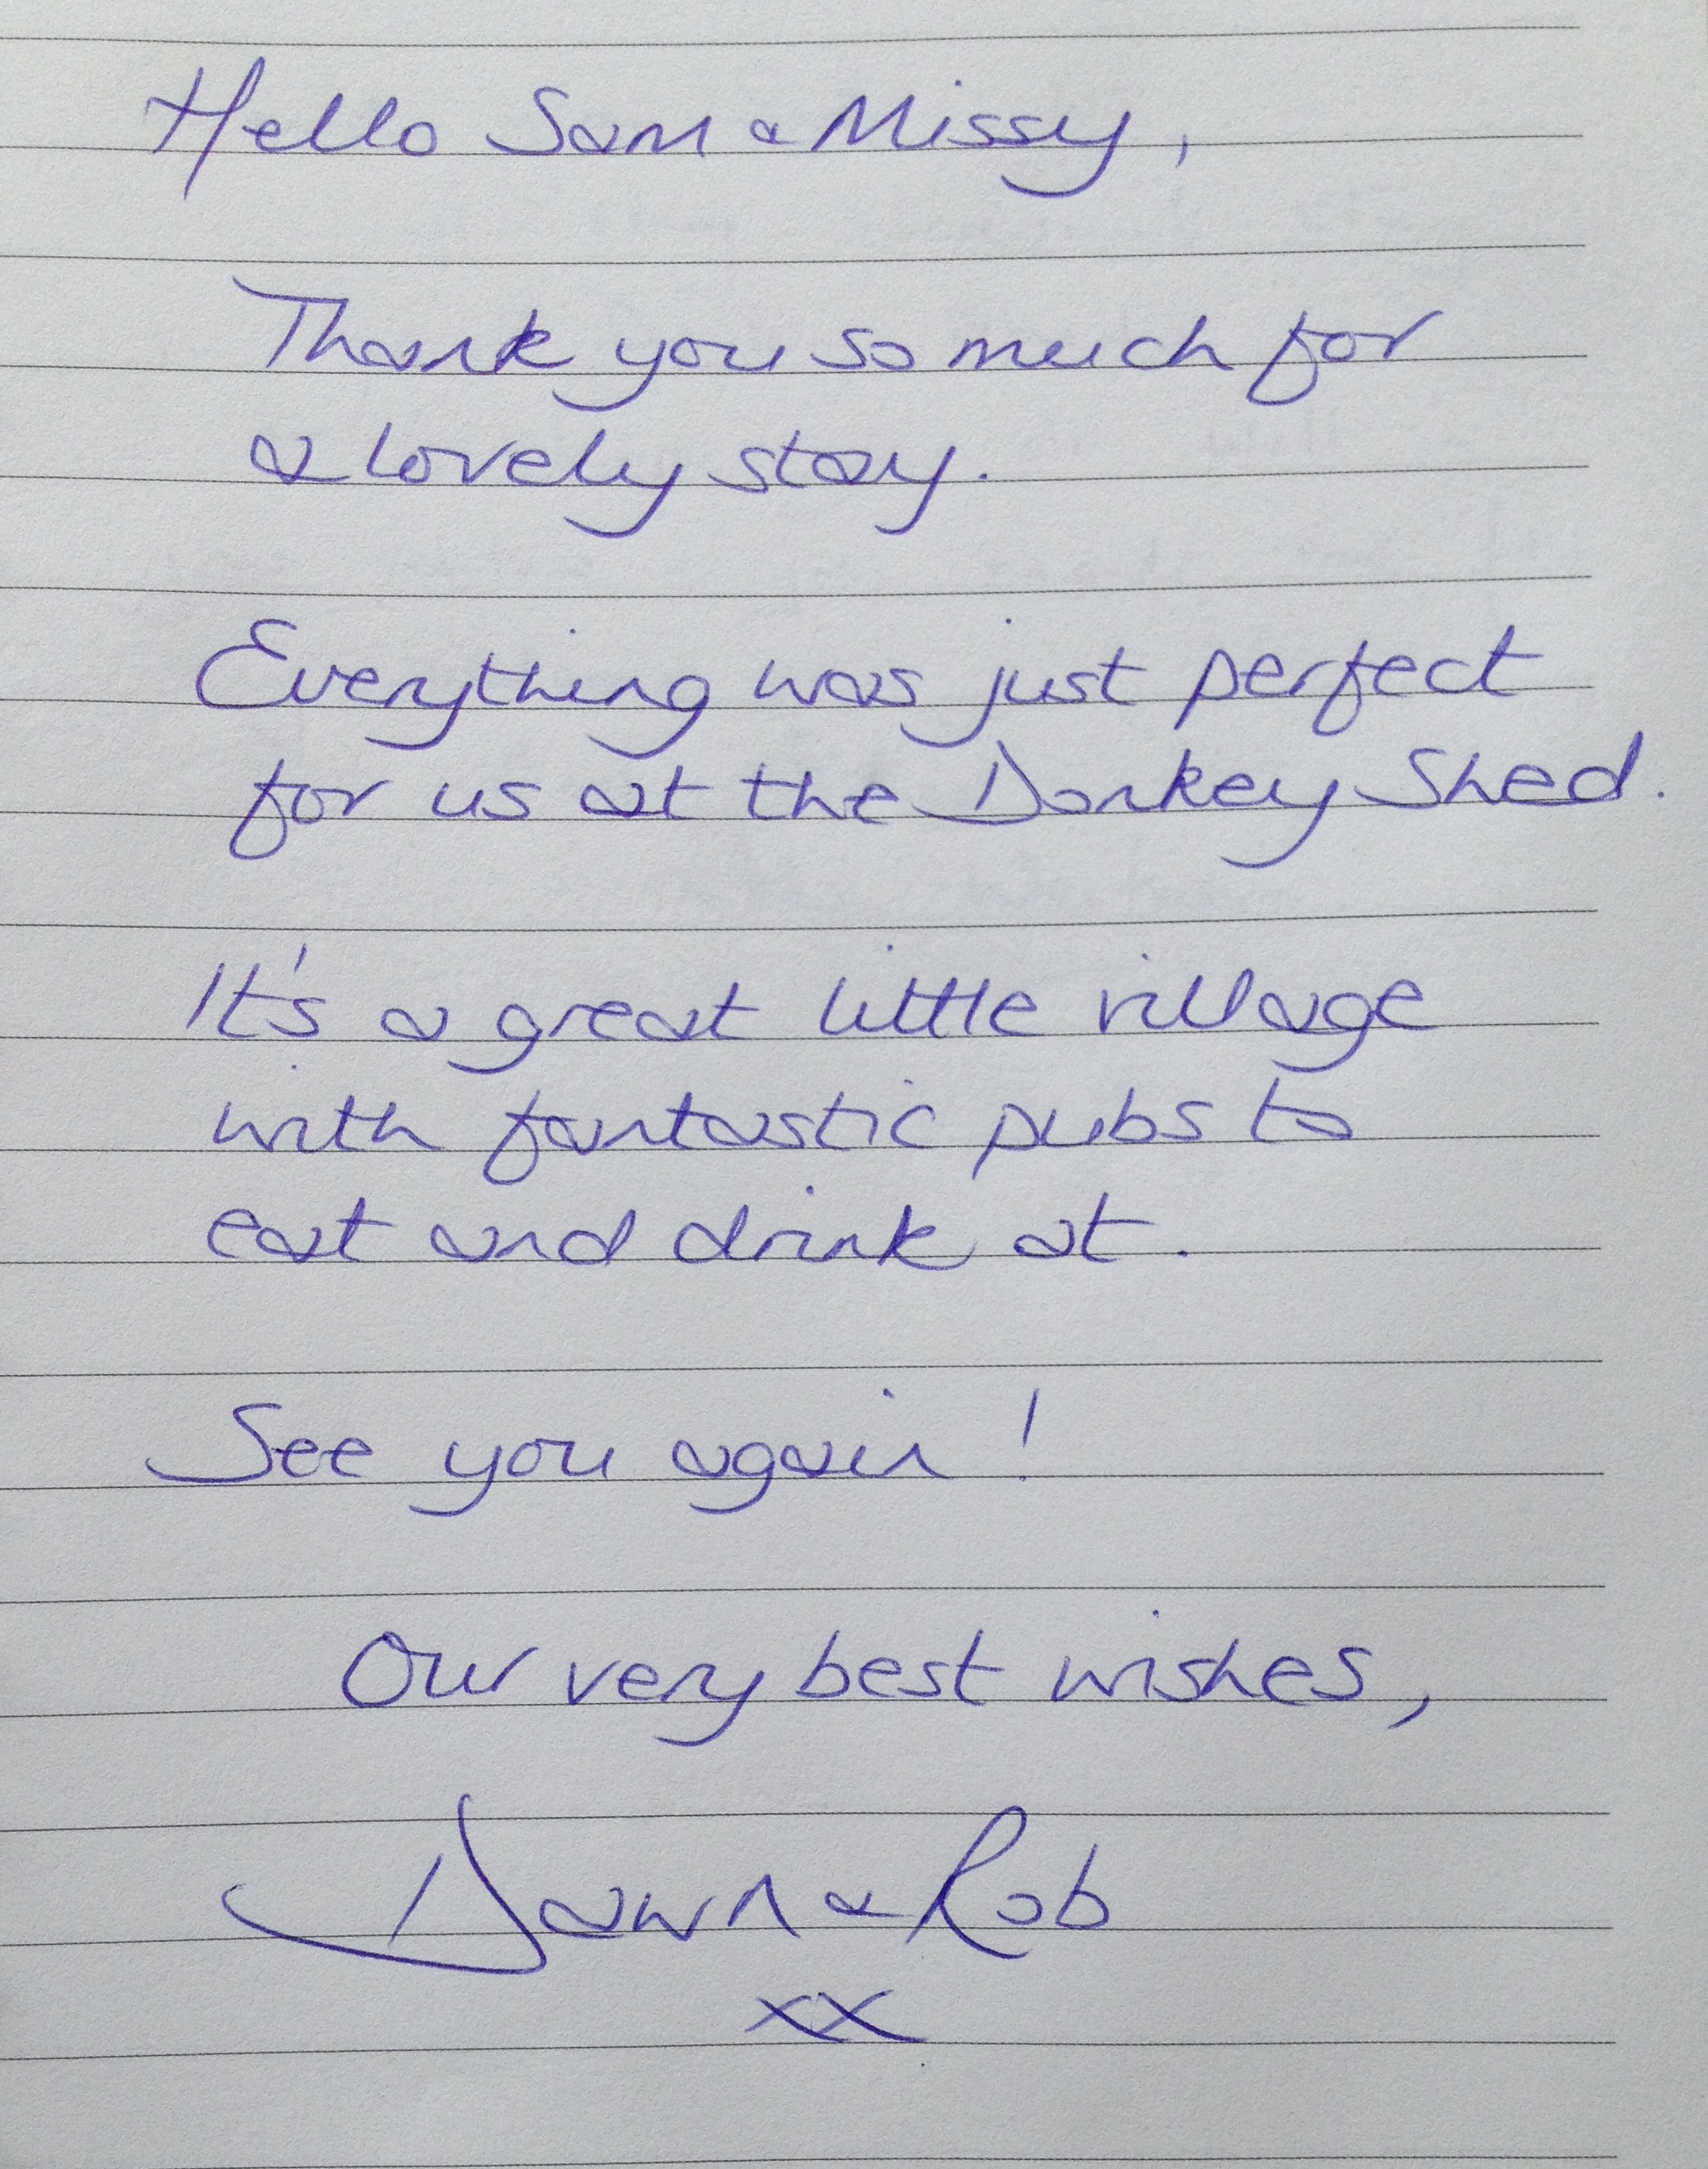 Hello Sam & Missy,
Thank you so much for
a lovely stay.
Everything was just perfect
for us at the Donkey Shed.
It's a great little village
with fantastic pubs to
eat and drink at.
See you again!
Our very best wishes,
Dawn & Rob
xx